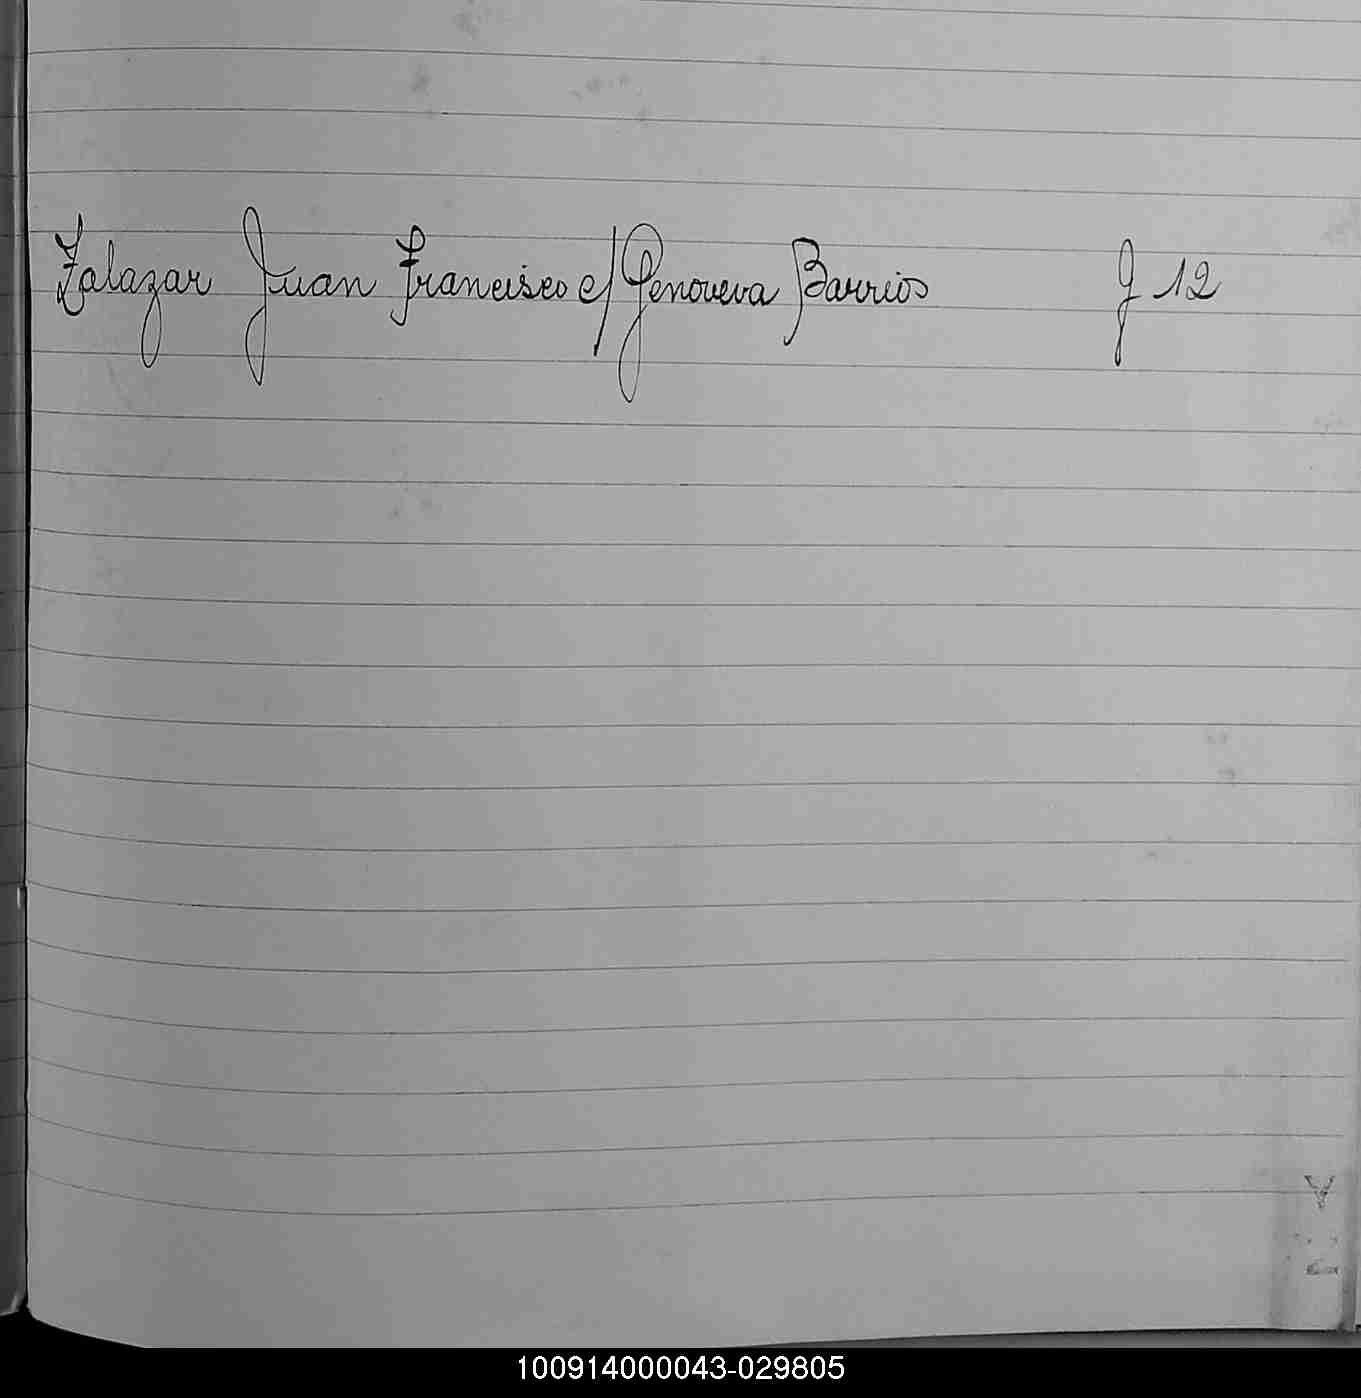 Zalazar Juan Francisco c/ Genoveva Barrios J 12
Y
Z
100914000043-029805